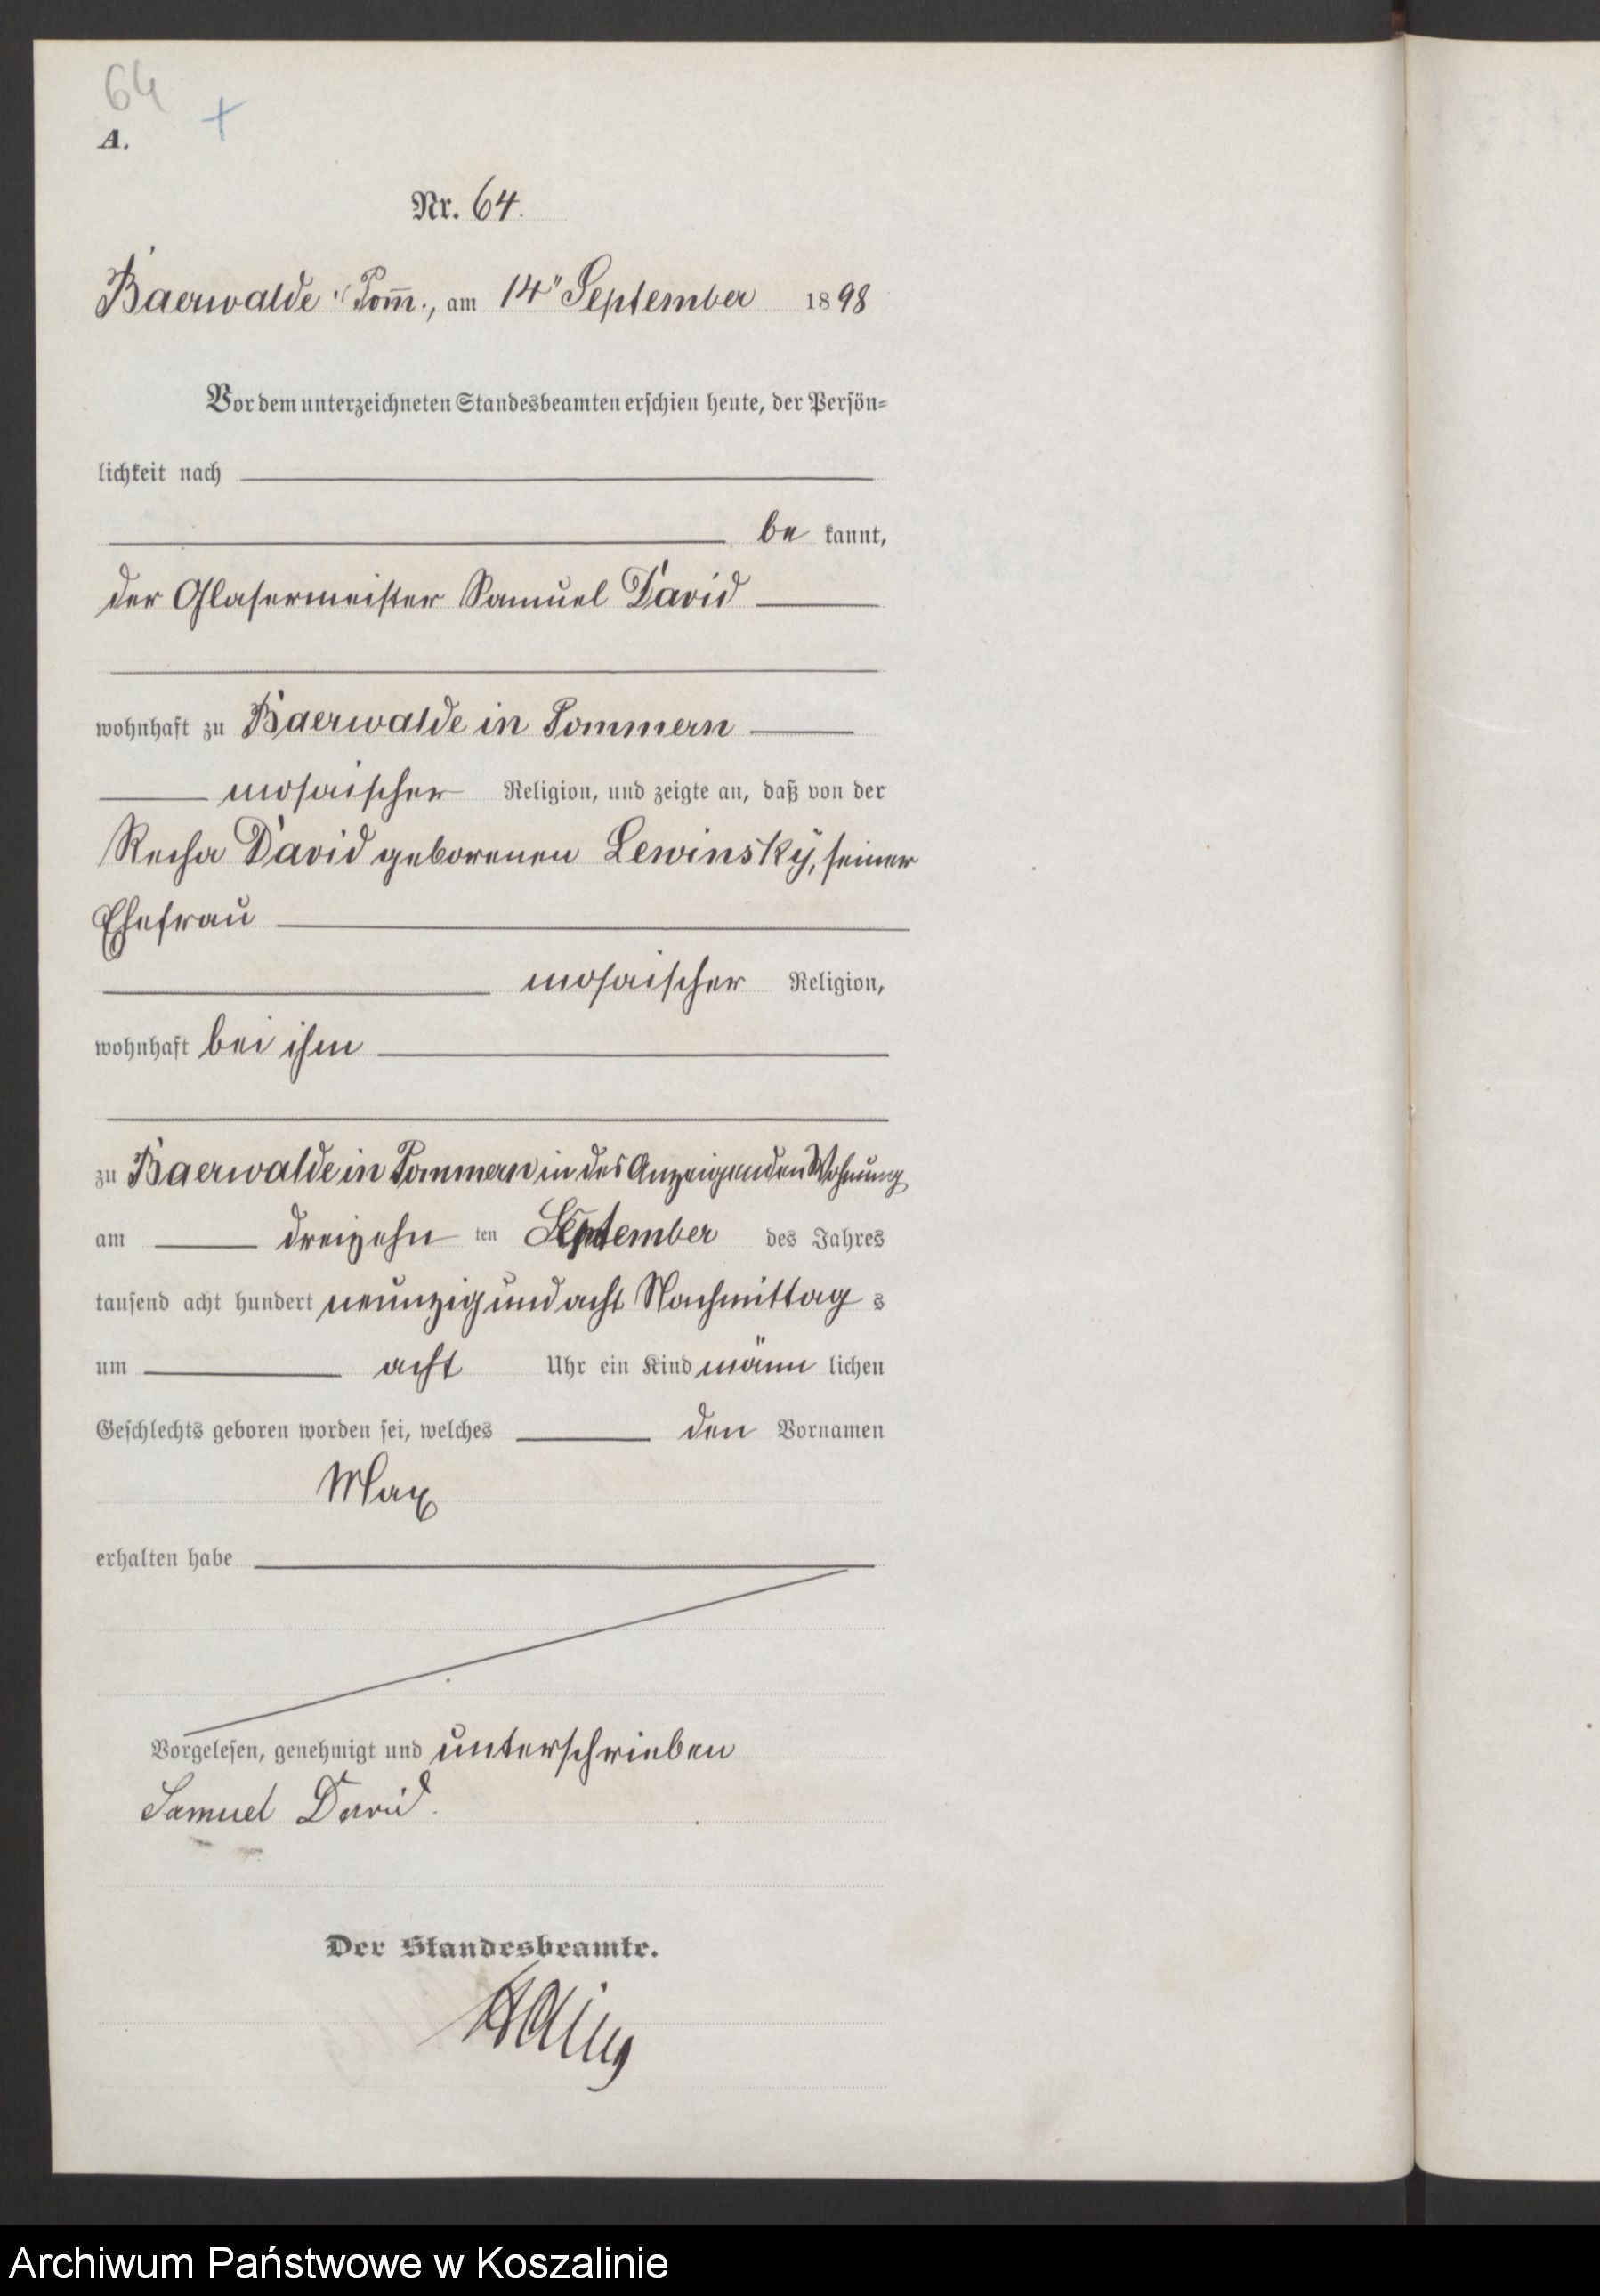 64
+
A.
Nr. 64.
Baerwalde i/ Pom̄., am 14ⁿ September 1898
Vor dem unterzeichneten Standesbeamten erschien heute, der Persön=
lichkeit nach
be kannt,
der Glasermeister Samuel David
wohnhaft zu Baerwalde in Pommern
mosaischer Religion, und zeigte an, daß von der
Recha David geborenen Lewinsky, seiner
Ehefrau
mosaischer Religion,
wohnhaft bei ihm
zu Baerwalde in Pommern in des Anzeigenden Wohnung
am dreizehn ten September des Jahres
tausend acht hundert neunzig und acht Nachmittag s
um acht Uhr ein Kind männ lichen
Geschlechts geboren worden sei, welches den Vornamen
Max
erhalten habe
Vorgelesen, genehmigt und unterschrieben
Samuel David.
Der Standesbeamte.
Archiwum Państwowe w Koszalinie